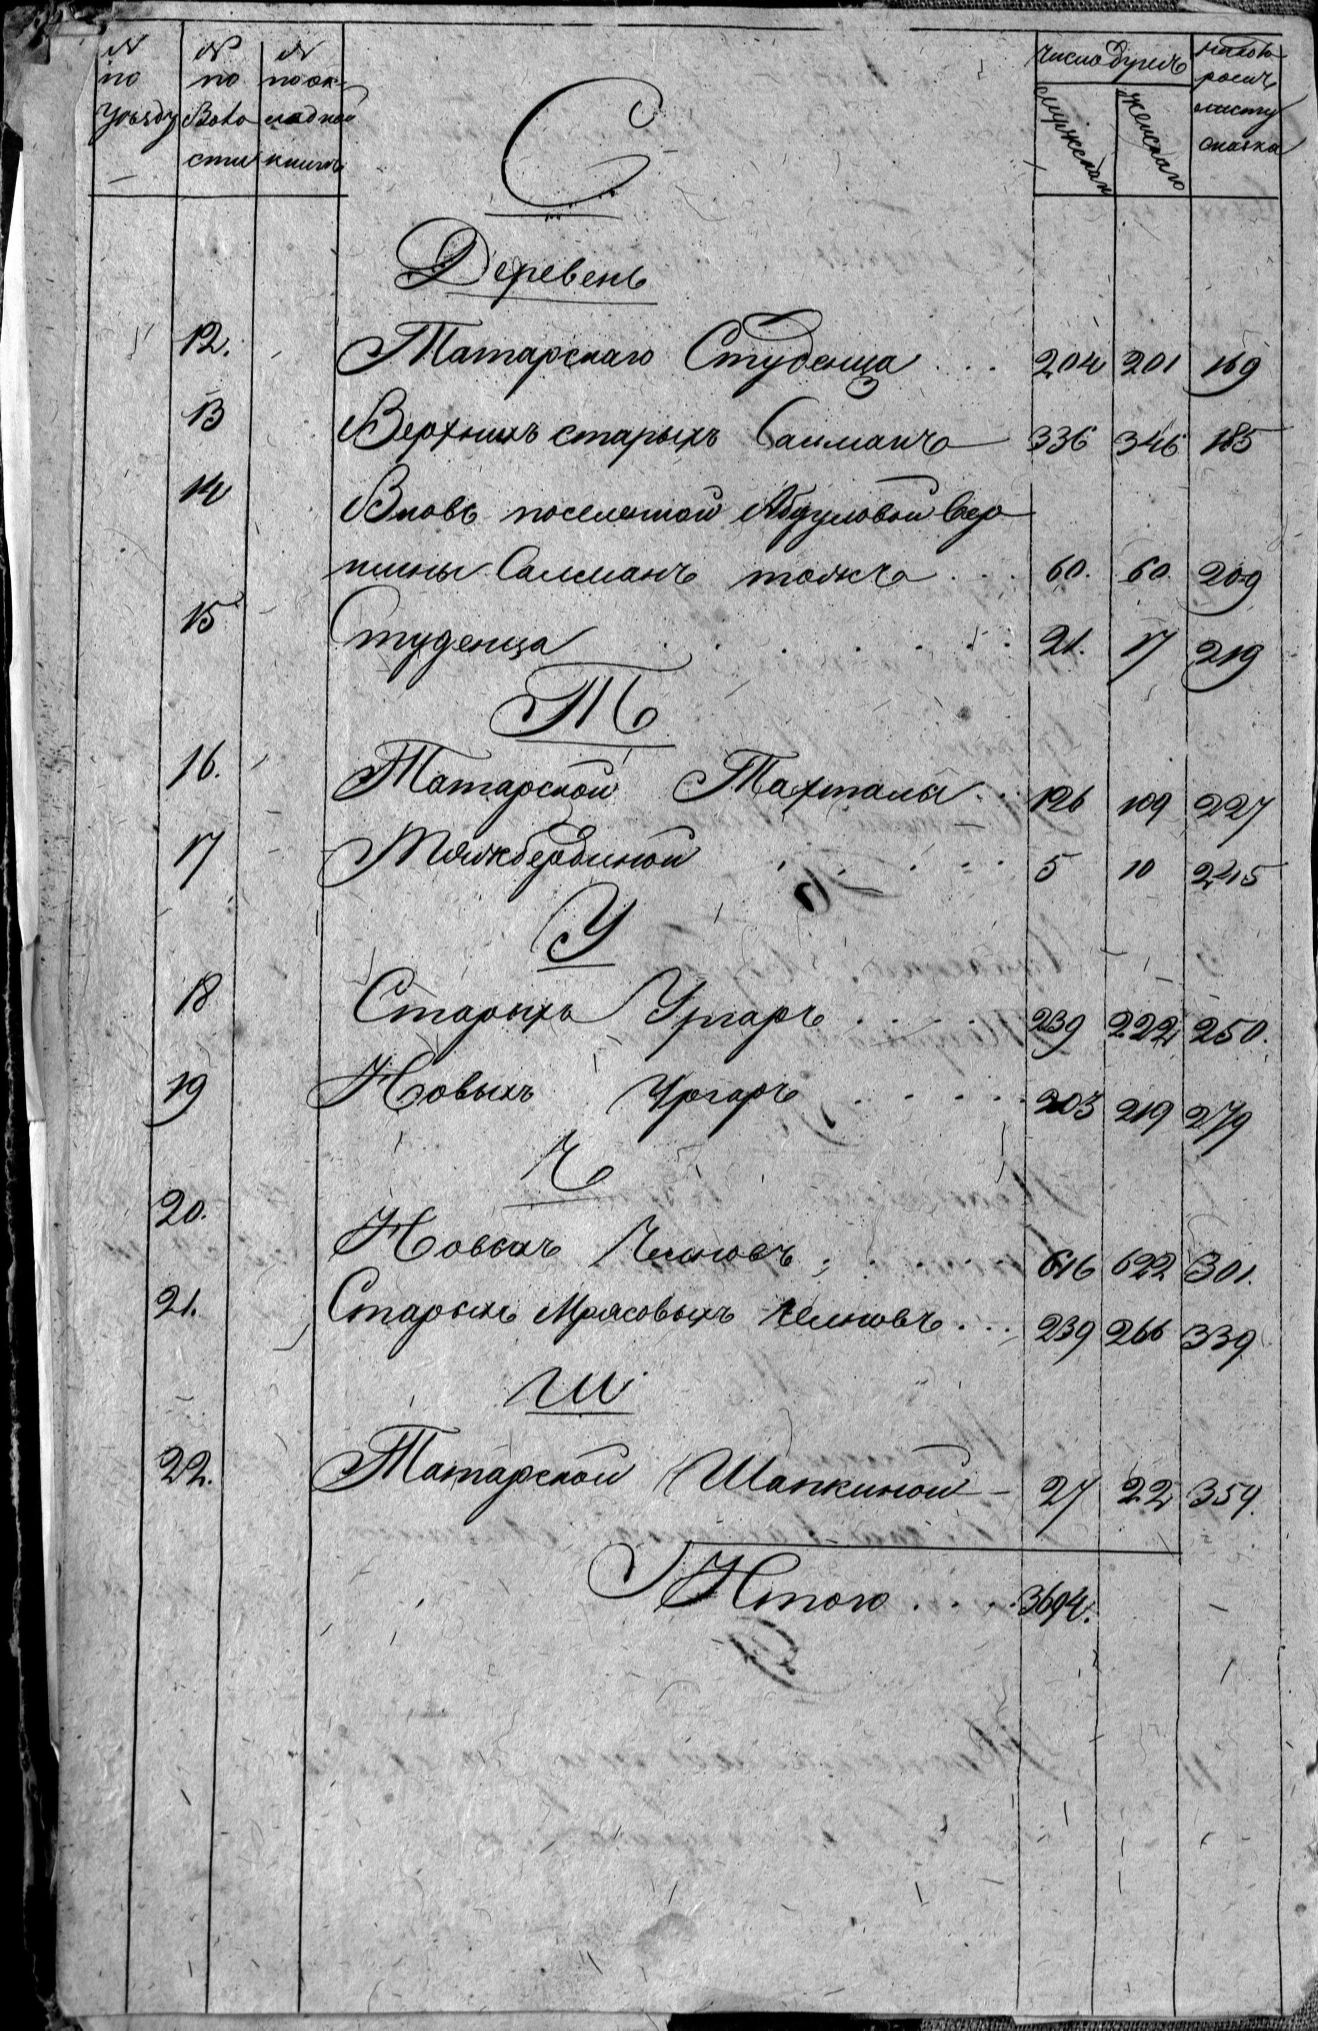 N по уѣзду
N по Воло сти
N по ок- ладной книгѣ
Число душъ
мужскаго
женскаго
на кото ромъ листу сказка
С
Деревень
12. Татарскаго Студенца . . . 204 201 169
13 Верхнихъ старыхъ Салманъ 336 346 185
14 Вновь поселенной Абдуловой Вер
шины Салманъ тожъ . . . 60. 60. 209
15 Студенца . . . . . . . 21. 17 219
Т
16. Татарской Тахталы . . 126 109 227
17 Тяжбердиной . . . . . 5 10 245
У
18 Старыхъ Ургаръ . . . . . 239 222 250.
19 Новыхъ Ургаръ . . . . . 203 219 279
Ч
20. Новыхъ Челновъ . . . . . 616 622 301.
21. Старыхъ Мрясовыхъ Челновъ . . . 239 266 339
Ш
22. Татарской Шапкиной 27 22 354.
Итого . . . . 3694.